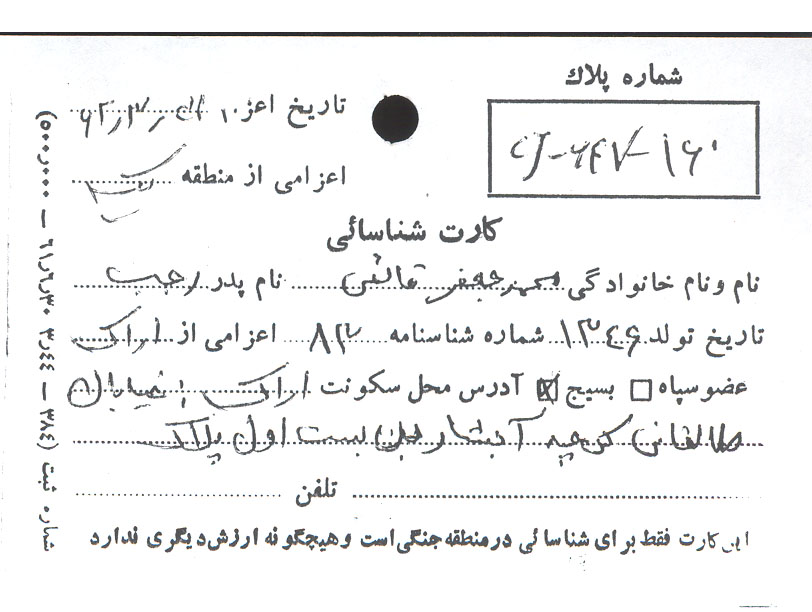 شماره پلاك
تاریخ اعزام
اعزامی از منطقه
کارت شناسائی
نام و نام خانوادگی محمد جعفر نام پدر رجب
تاریخ تولد ۱۳۴۶ شماره شناسنامه ۸۲ اعزامی از اراک
عضو سپاه □ بسیج ☒ آدرس محل سکونت اراک خیابان
طالقانی کوچه آبشار اول پلاک
تلفن
این کارت فقط برای شناسائی در منطقه جنگی است و هیچگونه ارزش دیگری ندارد
شماره ثبت (۳۸٤ — ۳٫٤٤ ۶۱٫۶٫۳۰ — ۵۰۰٫۰۰۰)